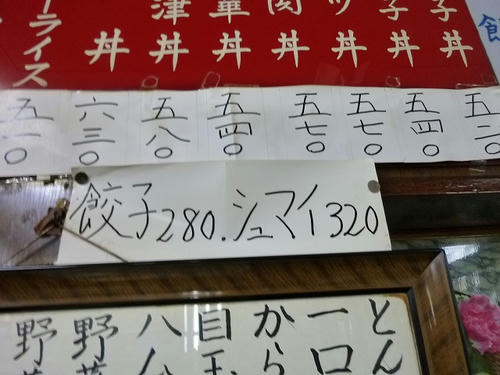 子丼
子丼
ツ丼
肉丼
華丼
津丼
丼
ーライス
五二〇
五四〇
五七〇
五七〇
五四〇
五八〇
六三〇
五一〇
餃子280.シュマイ320
とん
一口
から
目玉
八
野菜
野